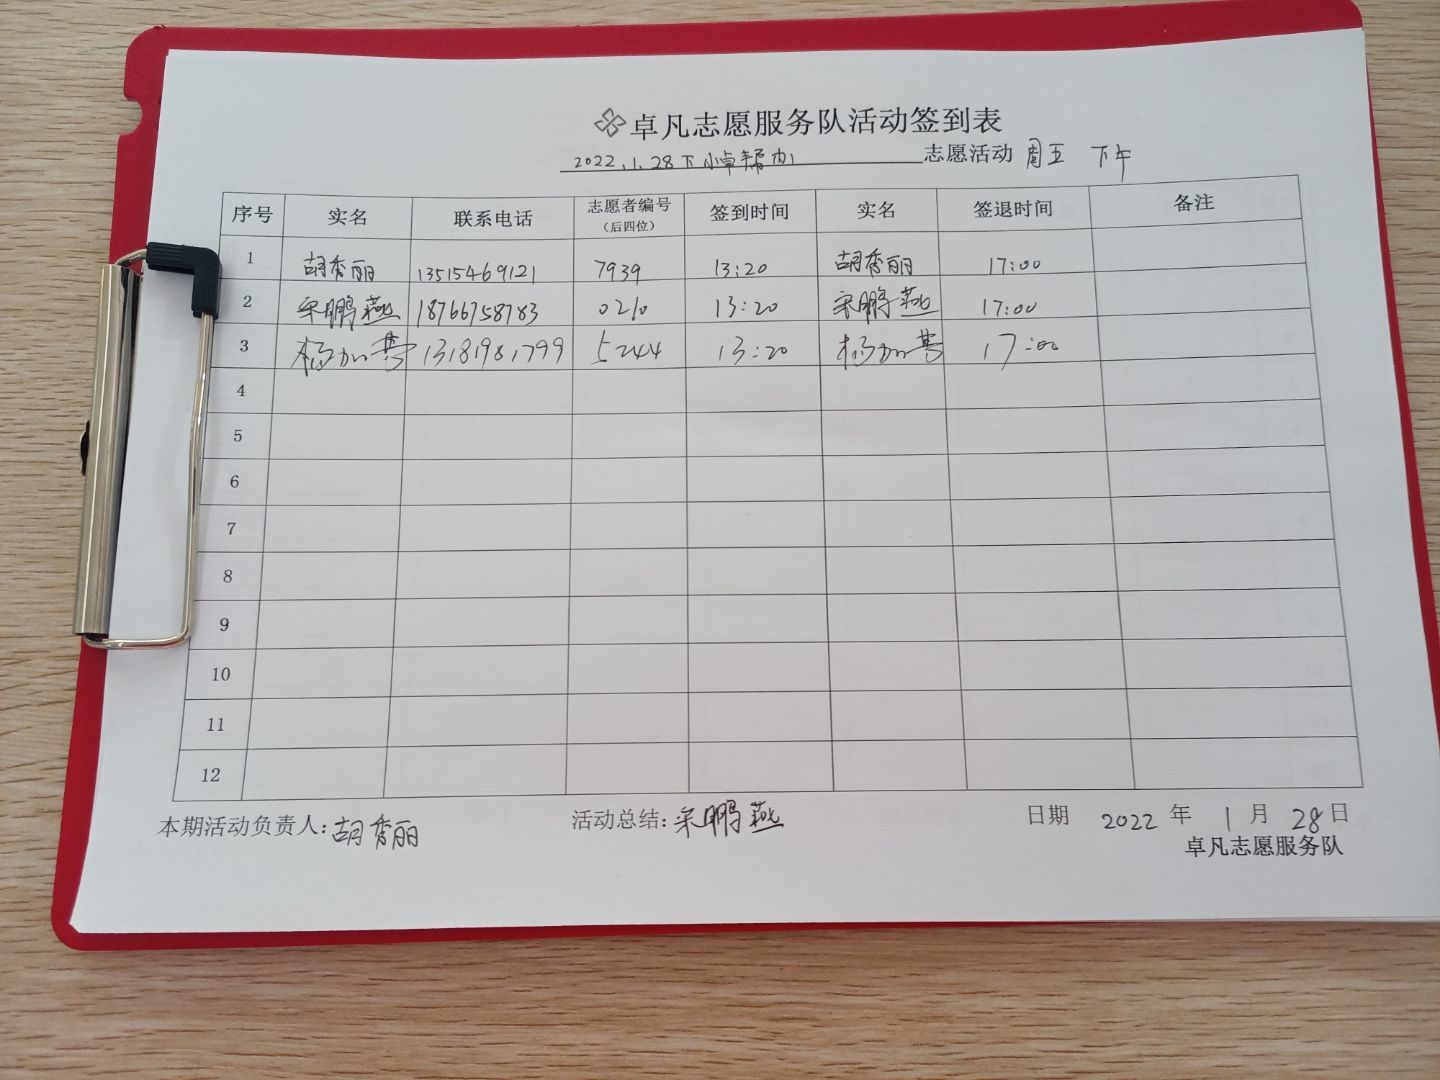 卓凡志愿服务队活动签到表
2022.1.28下小卓 志愿活动 周五 下午
序号 实名 联系电话 志愿者编号（后四位） 签到时间 实名 签退时间 备注
1 胡秀丽 13515469121 7939 13:20 胡秀丽 17:00
2 宋鹏燕 18766758783 0210 13:20 宋鹏燕 17:00
3 杨加 13181981799 5244 13:20 杨加 17:00
4
5
6
7
8
9
10
11
12
本期活动负责人: 胡秀丽 活动总结: 宋鹏燕 日期 2022 年 1 月 28 日
卓凡志愿服务队